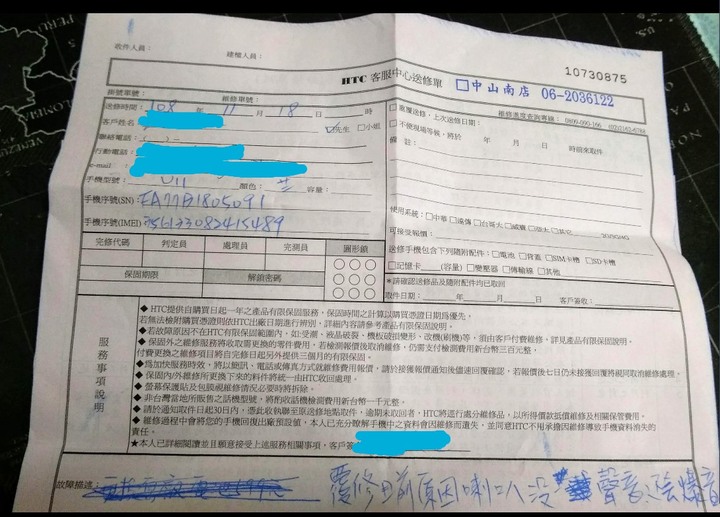 收件人員： 建檔人員：
10730875
HTC 客服中心送修單 □中山南店 06-2036122
掛號單號： 維修單號：
維修進度查詢專線：0809-090-166 (02)2162-6788
送修時間：108 年 11 月 18 日 時
□重覆送修，上次送修日期：
客戶姓名 先生 □小姐
□不便現場等候，將於 年 月 日 時前來取件
聯絡電話：
備 註：
行動電話：
e-mail ：
手機型號： U11 顏色： 容量：
手機序號(SN)：FA77B1805091
使用系統：□中華 □遠傳 □台哥大 □威寶 □亞太 □其它
手機序號(IMEI)：356133082415489
可接受報價：
完修代碼 判定員 處理員 完測員 圖形鎖
送修手機包含下列隨附配件：□電池 □背蓋 □SIM卡槽 □SD卡槽
□記憶卡 (容量) □變壓器 □傳輸線 □其他
保固期限 解鎖密碼
*請確認送修品及隨附配件均已取回
取件日期： 年 月 日 客戶簽收：
服務事項說明
◆HTC提供自購買日起一年之產品有限保固服務，保固時間之計算以購買憑證日期為優先，
若無法檢附購買憑證則依HTC出廠日期進行辨別，詳細內容請參考產品有限保固說明。
◆若故障原因不在HTC有限保固範圍內，如:受潮、液晶破裂、機板破損變形、改機(刷機)等，須由客戶付費維修，詳見產品有限保固說明。
◆保固外之維修服務將收取需更換的零件費用，若檢測報價後取消維修，仍需支付檢測費用新台幣三百元整，
付費更換之維修項目將自完修日起另外提供三個月的有限保固。
◆為加快服務時效，將以簡訊、電話或傳真方式就維修費用報價，請於接獲報價通知後儘速回覆確認，若報價後七日仍未接獲回覆將視同取消維修處理。
◆保固內外維修所更換下來的料件將統一由HTC收回處理。
◆螢幕保護貼及包膜視維修情況必要時將拆除。
◆非台灣當地所販售之話機型號，將酌收話機檢測費用新台幣一千元整。
◆請於通知取件日起30日內，憑此收執聯至原送修地點取件，逾期未取回者，HTC將逕行處分維修品，以所得價款抵償維修及相關保管費用。
◆維修過程中會將您的手機回復出廠預設值，本人已充分瞭解手機中之資料會因維修而遺失，並同意HTC不用承擔因維修導致手機資料消失的
責任。
★本人已詳細閱讀並且願意接受上述服務相關事項，客戶簽
故障描述： 覆修 目前原因喇叭沒聲音